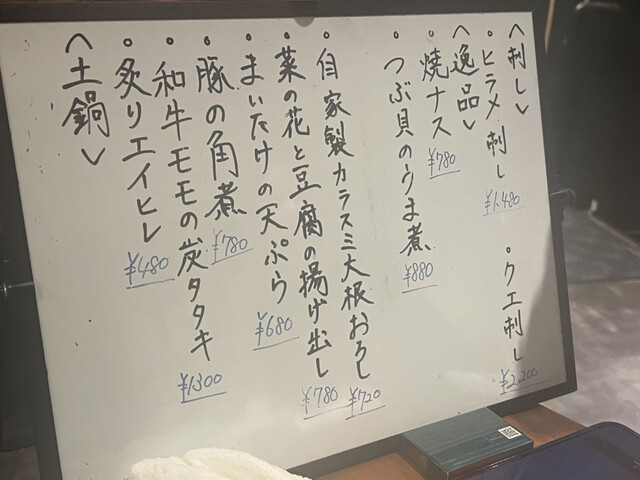 〈刺し〉
・ヒラメ刺し ¥1,480
・クエ刺し ¥2,200
〈逸品〉
焼ナス ¥780
・つぶ貝のうま煮 ¥880
・自家製カラスミ大根おろし ¥720
・菜の花と豆腐の揚げ出し ¥780
・まいたけの天ぷら ¥680
・豚の角煮 ¥780
・和牛モモの炭タタキ ¥1300
・炙りエイヒレ ¥480
〈土鍋〉